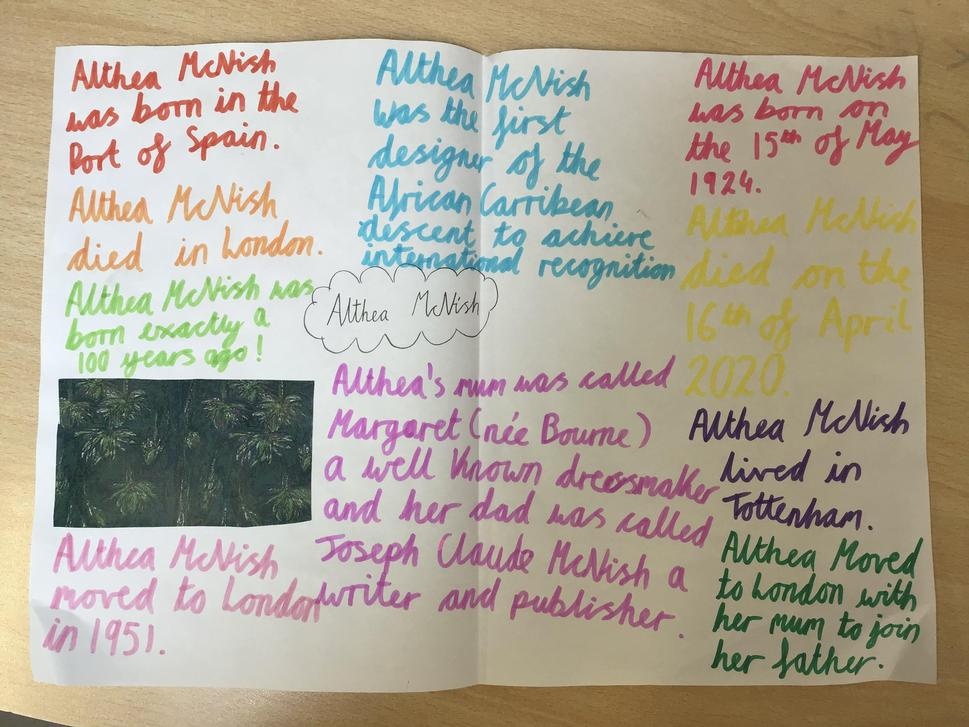 Althea McNish
was born in the
Port of Spain.
Althea McNish
died in London.
Althea McNish was
born exactly a
100 years ago!
Althea McNish
moved to London
in 1951.
Althea McNish
was the first
designer of the
African Carribean
descent to achieve
international recognition
Althea McNish
Althea's mum was called
Margaret (née Bourne)
a well known dressmaker
and her dad was called
Joseph Claude McNish a
writer and publisher.
Althea McNish
was born on
the 15th of May
1924.
Althea McNish
died on the
16th of April
2020.
Althea McNish
lived in
Tottenham.
Althea Moved
to London with
her mum to join
her father.